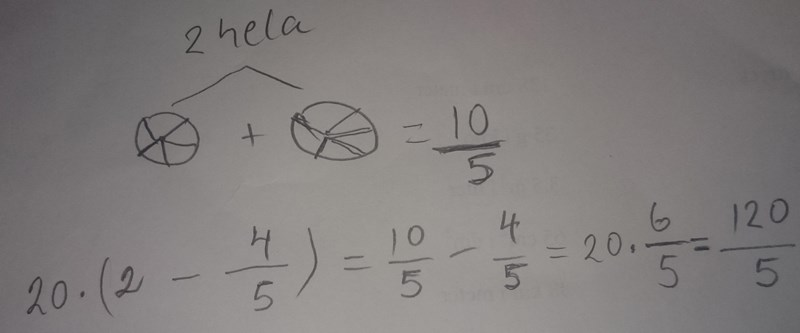 2 hela
+ = 10/5
20·(2 - 4/5) = 10/5 - 4/5 = 20·6/5 = 120/5